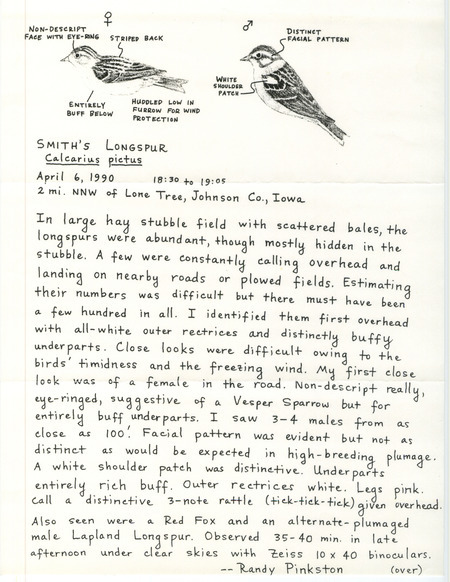 ♀
♂
NON-DESCRIPT
FACE WITH EYE-RING
STRIPED BACK
DISTINCT
FACIAL PATTERN
WHITE
SHOULDER
PATCH
ENTIRELY
BUFF BELOW
HUDDLED LOW IN
FURROW FOR WIND
PROTECTION
SMITH'S LONGSPUR
Calcarius pictus
April 6, 1990 18:30 to 19:05
2 mi. NNW of Lone Tree, Johnson Co., Iowa
In large hay stubble field with scattered bales, the
longspurs were abundant, though mostly hidden in the
stubble. A few were constantly calling overhead and
landing on nearby roads or plowed fields. Estimating
their numbers was difficult but there must have been
a few hundred in all. I identified them first overhead
with all-white outer rectrices and distinctly buffy
underparts. Close looks were difficult owing to the
birds' timidness and the freezing wind. My first close
look was of a female in the road. Non-descript really,
eye-ringed, suggestive of a Vesper Sparrow but for
entirely buff underparts. I saw 3-4 males from as
close as 100'. Facial pattern was evident but not as
distinct as would be expected in high-breeding plumage.
A white shoulder patch was distinctive. Underparts
entirely rich buff. Outer rectrices white. Legs pink.
Call a distinctive 3-note rattle (tick-tick-tick) given overhead.
Also seen were a Red Fox and an alternate-plumaged
male Lapland Longspur. Observed 35-40 min. in late
afternoon under clear skies with Zeiss 10 x 40 binoculars.
-- Randy Pinkston (over)